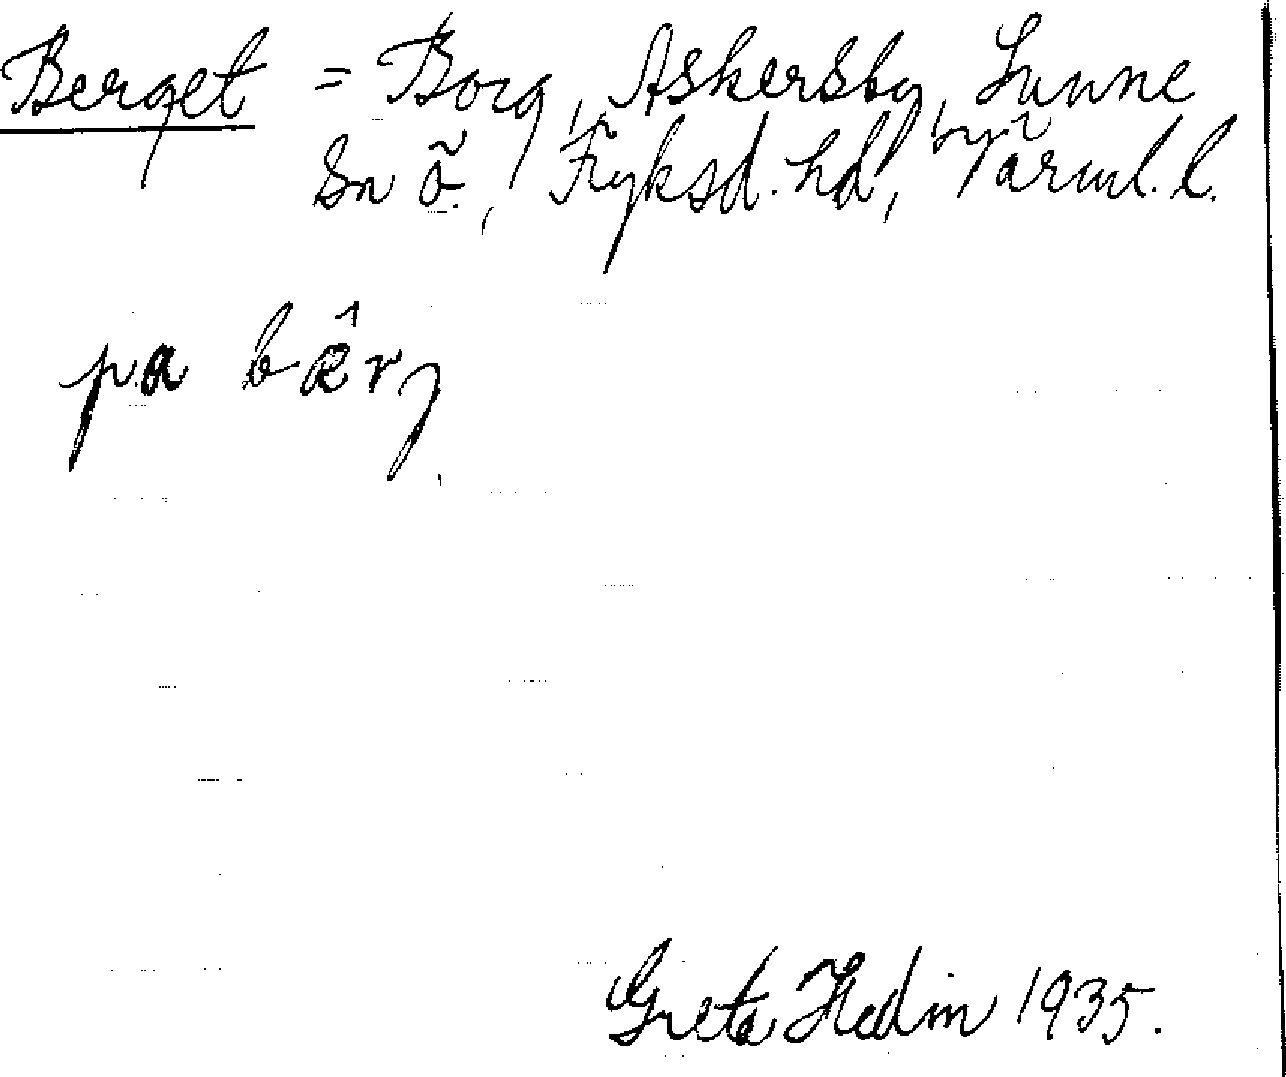 Berget = Borg, Askersby, Sunne
sn ö., Fryksd. hd, Värml. l.
pa bærj
Greta Hedin 1935.